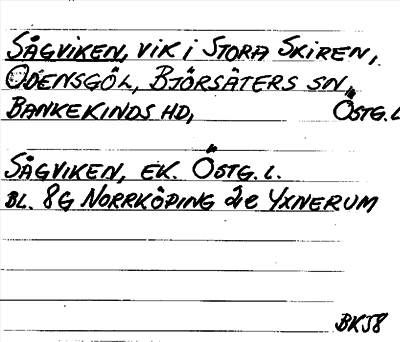 SÅGVIKEN, VIK I STORA SKIREN,
ODENSGÖL, BJÖRSÄTERS SN,
BANKEKINDS HD, ÖSTG.L
SÅGVIKEN, EK. ÖSTG.L.
BL. 8G NORRKÖPING 2e YXNERUM
BKJ8